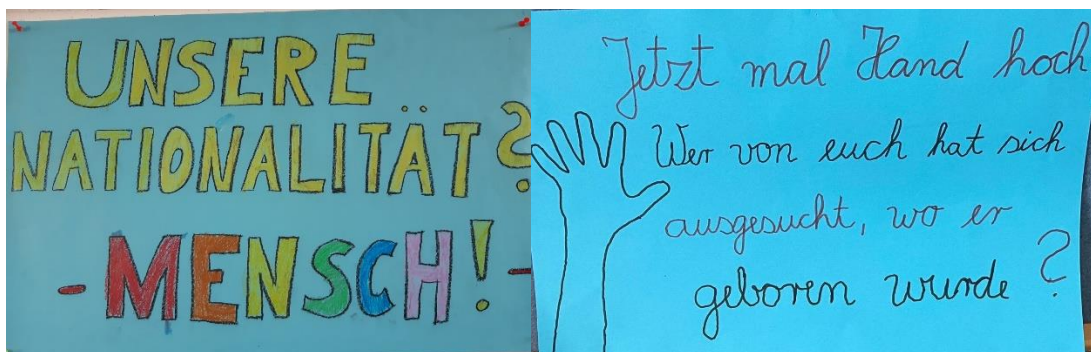 UNSERE
NATIONALITÄT?
-MENSCH!-
Jetzt mal Hand hoch
Wer von euch hat sich
ausgesucht, wo er
geboren wurde?